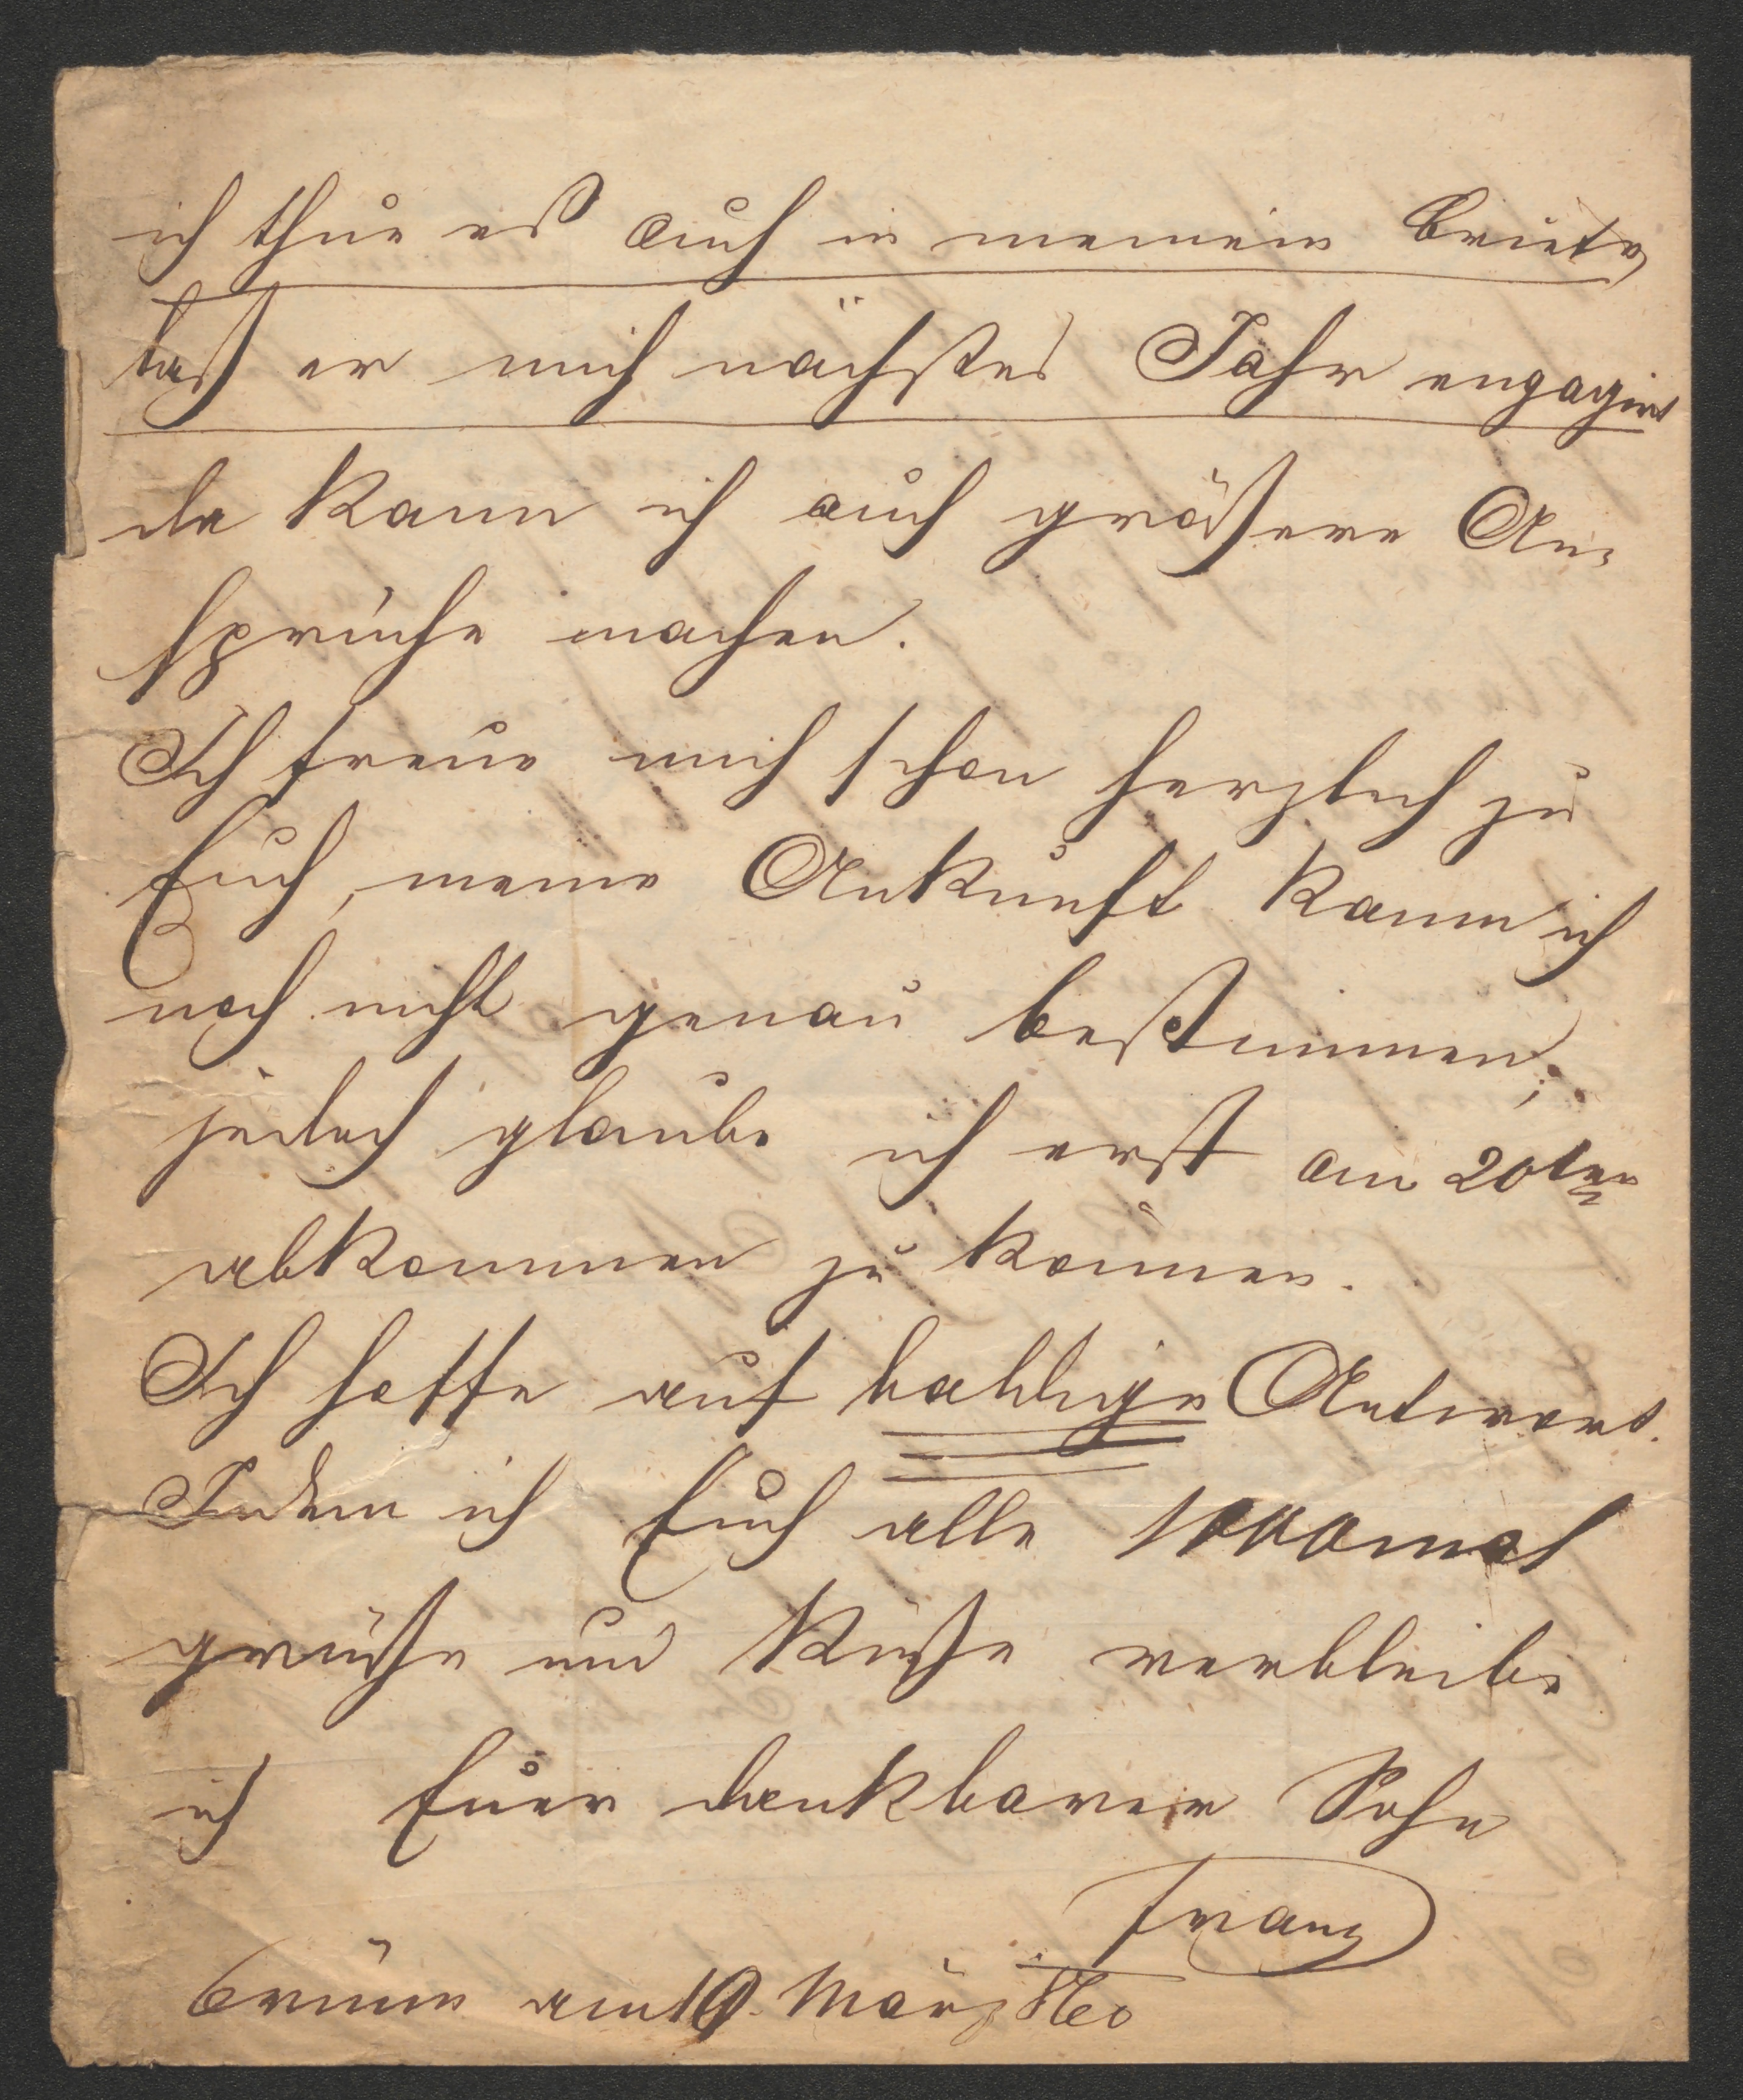 ich thue es auch in meinem Briefe
daß er mich nächstes Jahr engagirt
da kann ich auch größere An-
sprüche machen.
Ich freue mich schon herzlich zu
Euch, meine Ankunft kann ich
noch nicht genau bestimmen;
jedoch glaube ich erst am 20ten
abkommen zu können.
Ich hoffe auf baldige Antwort.
Indem ich Euch alle 1000mal
grüße und küße verbleibe
ich Euer dankbarer Sohn
Franz
Brünn am 19. März